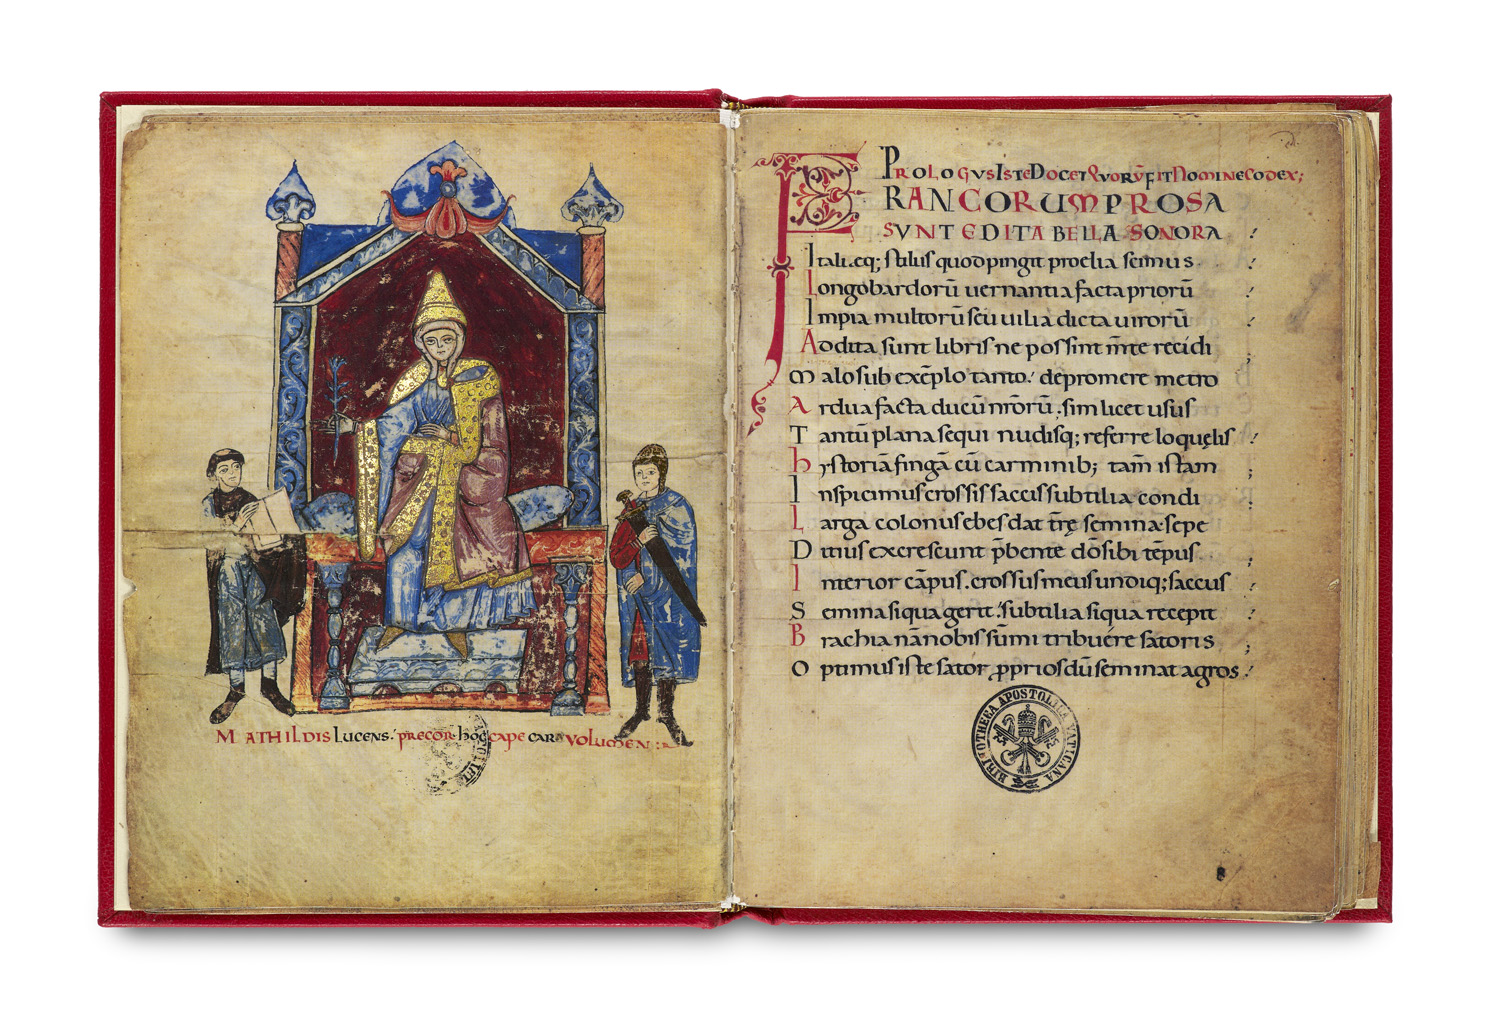 MATHILDIS LUCENS: PRECOR HOC CAPE CARA VOLUMEN:
PROLOGUS ISTE DOCET QVORV̄ FIT NOMINE CODEX;
FRANCORUM PROSA
SVNT EDITA BELLA SONORA
Italicq; stilus quod pingit proelia seruus
Longobardorū uernantia facta priorū
Impia multorū seu uilia dicta uirorū
Addita sunt libris ne possint m̄te recidi
Malo sub exēplo tanto: depromere metro
Ardua facta ducū nr̄orū; sim licet usus
Tantū plana sequi nudisq; referre loquęlis
hystoriā fingā cū carminib; tam istam
Inspicimus crossis saccis subtilia condi
Larga colonus ebes dat tr̄ę semina sepe
Ditius excrescunt p̄bente dō sibi tēpus
Interior cāpus. crossus meus undiq; saccus
Semina siqua gerit. subtilia siqua recepit
Brachia nā nobis sūmi tribuere satoris
Optimus iste sator p̄prios dū seminat agros
BIBLIOTHECA APOSTOLICA VATICANA